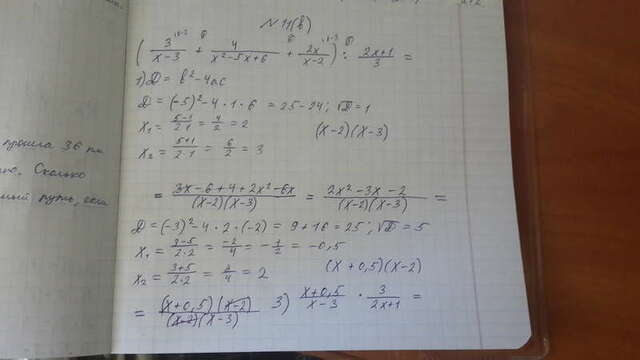 N 11(б)
( 3/x-3 + 4/x²-5x+6 + 2x/x-2 ) : 2x+1/3 =
1) D = b² - 4ac
D = (-5)² - 4·1·6 = 25-24; √D = 1
x₁ = 5-1/2·1 = 4/2 = 2 (x-2)(x-3)
x₂ = 5+1/2·1 = 6/2 = 3
= 3x-6+4+2x²-6x/(x-2)(x-3) = 2x²-3x-2/(x-2)(x-3) =
D = (-3)² - 4·2·(-2) = 9+16 = 25; √D = 5
x₁ = 3-5/2·2 = -2/4 = -1/2 = -0,5
x₂ = 3+5/2·2 = 8/4 = 2 (x+0,5)(x-2)
= (x+0,5)(x-2)/(x-2)(x-3) 3) x+0,5/x-3 · 3/2x+1 =
прошла 36 км
Сколько
путь, если